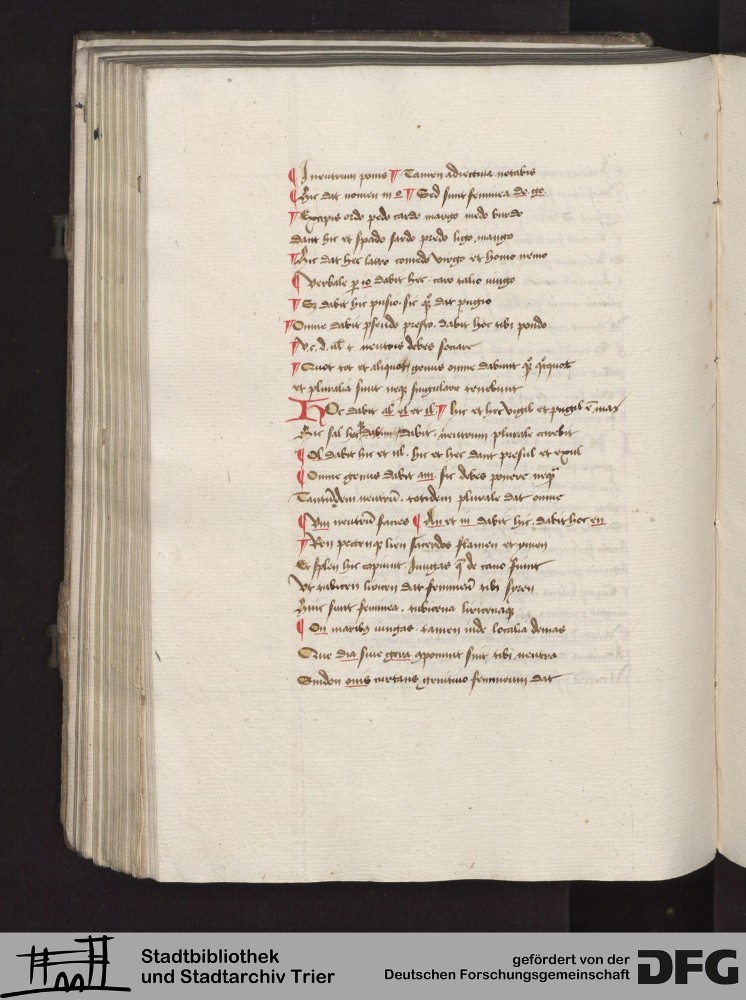 ¶ In neutrum pono ¶ Tamen adiectiva notabis
¶ Hic dat nomen in o ¶ Sed sunt feminea do go
¶ Excipis ordo pedo cardo margo medo burdo
dant hic et spado fardo predo ligo mango
¶ Hic dat hec latro comedo virgo et homo nemo
¶ Verbale per io dabit hec caro talio
¶ Sed dabit hic pusio sic dat pugio
¶ Omne dabit pseudo presto dabit hoc tibi pondo
¶ v c d t neutris debes sociare
¶ Quot tot et aliquot genus omne dabunt
et pluralia sunt neque singulare tenebunt
Hoc dabit al el et il ¶ hic et hec vigil et pugil
Hic sal dabit neutrum plurale carebit
¶ Ol dabit hic et ul hic et hec dant presul et exul
¶ Omne genus dabit am sic debes ponere
neutrum totidem plurale dat omne
¶ Um neutrum facies ¶ An et in dabit hic dabit hoc en
¶ Ren pecten lien flamen et ymen
Et splen hic capiunt iungas de cano fiunt
Ut tubicen liricen dat femineum tibi syren
Hinc sunt feminea tubicena liricenaque
¶ On maribus iungas tamen inde localia demas
Que dia sive componunt sint tibi neutra
Sindon onis curtans genitivo femininum dat
Stadtbibliothek
und Stadtarchiv Trier
gefördert von der
Deutschen Forschungsgemeinschaft
DFG